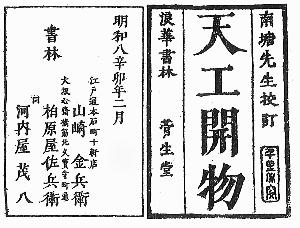 南塘先生校訂
天工開物
千里必究
浪華書林 菅生堂
明和八辛卯年二月
書林
江戸通本石町十軒店
山崎金兵衛
大坂心斎橋筋北久寳寺町
柏原屋佐兵衛
同
河内屋茂八